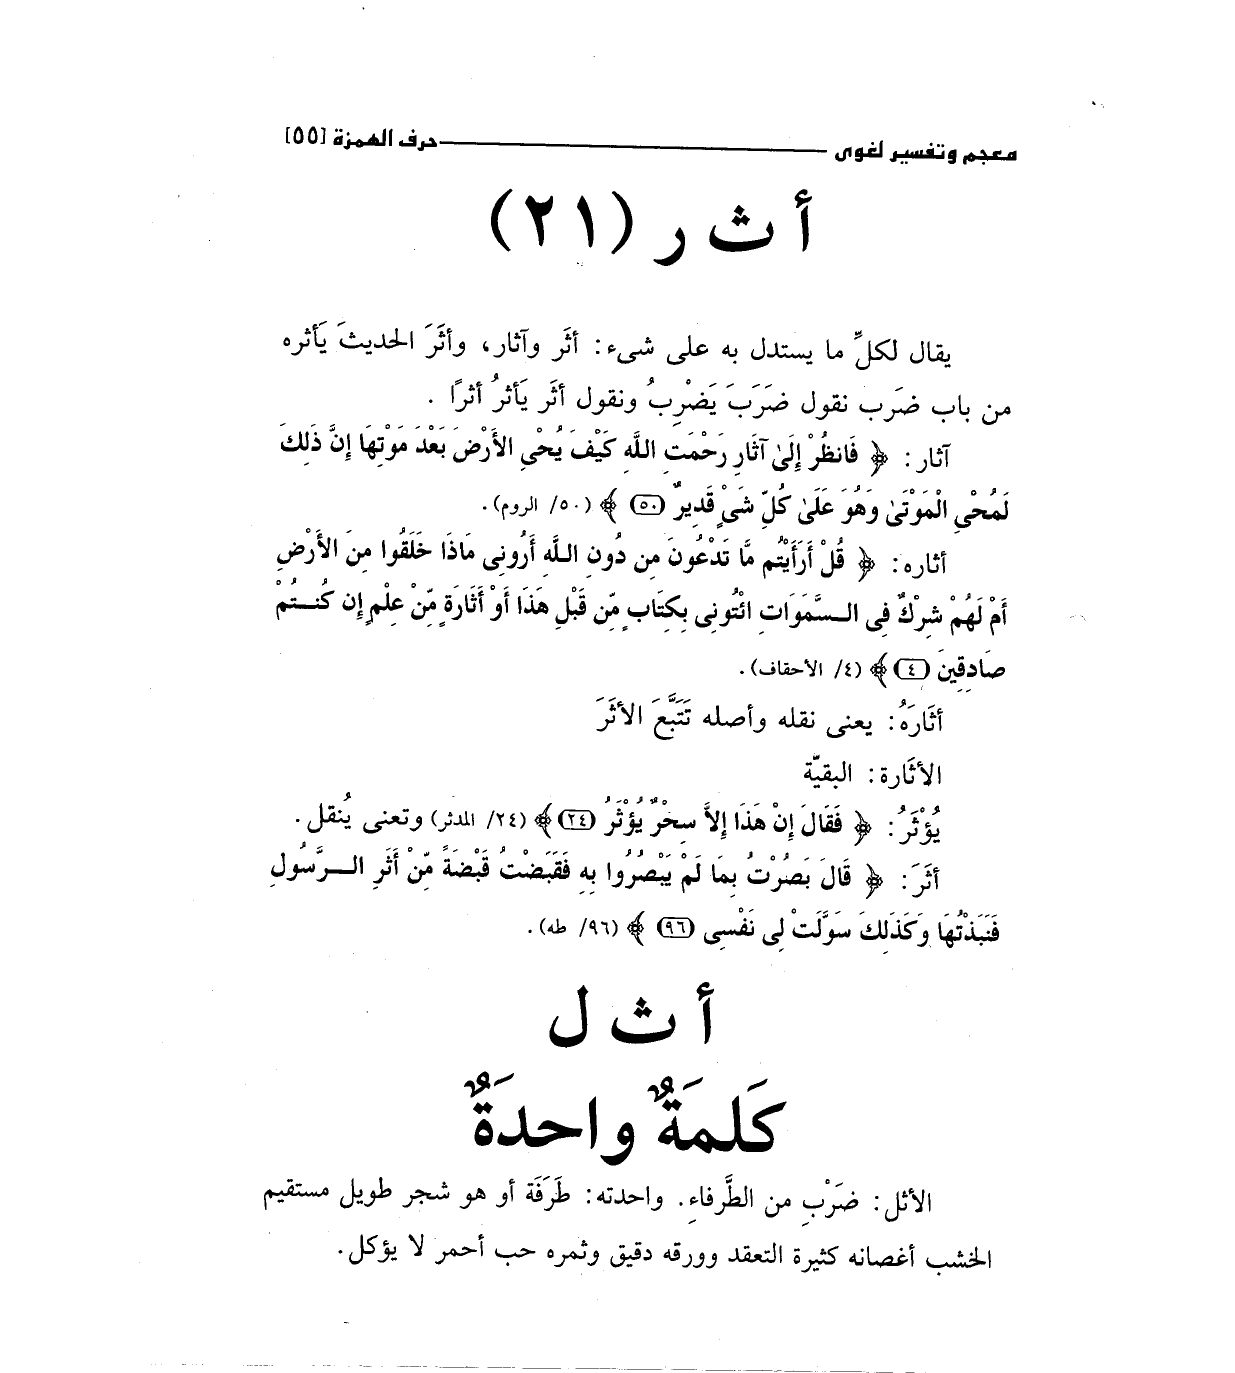 معجم وتفسير لغوى حرف الهمزة [٥٥]
أ ث ر (٢١)
يقال لكلِّ ما يستدل به على شىء: أثَر وآثار، وأثَرَ الحديثَ يَأثره
من باب ضَرب نقول ضَرَبَ يَضْرِبُ ونقول أثَر يَأثرُ أثرًا .
آثار: ﴿ فَانظُرْ إِلَىٰ آثَارِ رَحْمَتِ اللَّهِ كَيْفَ يُحْيِ الأَرْضَ بَعْدَ مَوْتِهَا إِنَّ ذَلِكَ
لَمُحْيِ الْمَوْتَىٰ وَهُوَ عَلَىٰ كُلِّ شَىْءٍ قَدِيرٌ (٥٠) ﴾ (٥٠/ الروم).
أثاره: ﴿ قُلْ أَرَأَيْتُم مَّا تَدْعُونَ مِن دُونِ اللَّهِ أَرُونِى مَاذَا خَلَقُوا مِنَ الأَرْضِ
أَمْ لَهُمْ شِرْكٌ فِى السَّمَوَاتِ ائْتُونِى بِكِتَابٍ مِّن قَبْلِ هَذَا أَوْ أَثَارَةٍ مِّنْ عِلْمٍ إِن كُنتُمْ
صَادِقِينَ (٤) ﴾ (٤/ الأحقاف).
أثَارَهُ: يعنى نقله وأصله تَتَبَّعَ الأثَرَ
الأثَارة: البقيّة
يُؤْثَرُ: ﴿ فَقَالَ إِنْ هَذَا إِلاَّ سِحْرٌ يُؤْثَرُ (٢٤) ﴾ (٢٤/ المدثر) وتعنى يُنقل.
أثَرَ: ﴿ قَالَ بَصُرْتُ بِمَا لَمْ يَبْصُرُوا بِهِ فَقَبَضْتُ قَبْضَةً مِّنْ أَثَرِ الرَّسُولِ
فَنَبَذْتُهَا وَكَذَلِكَ سَوَّلَتْ لِى نَفْسِى (٩٦) ﴾ (٩٦/ طه).
أ ث ل
كَلمَةٌ واحدَةٌ
الأثل: ضَرْبٍ من الطَّرفاءِ. واحدته: طَرَفَة أو هو شجر طويل مستقيم
الخشب أغصانه كثيرة التعقد وورقه دقيق وثمره حب أحمر لا يؤكل.